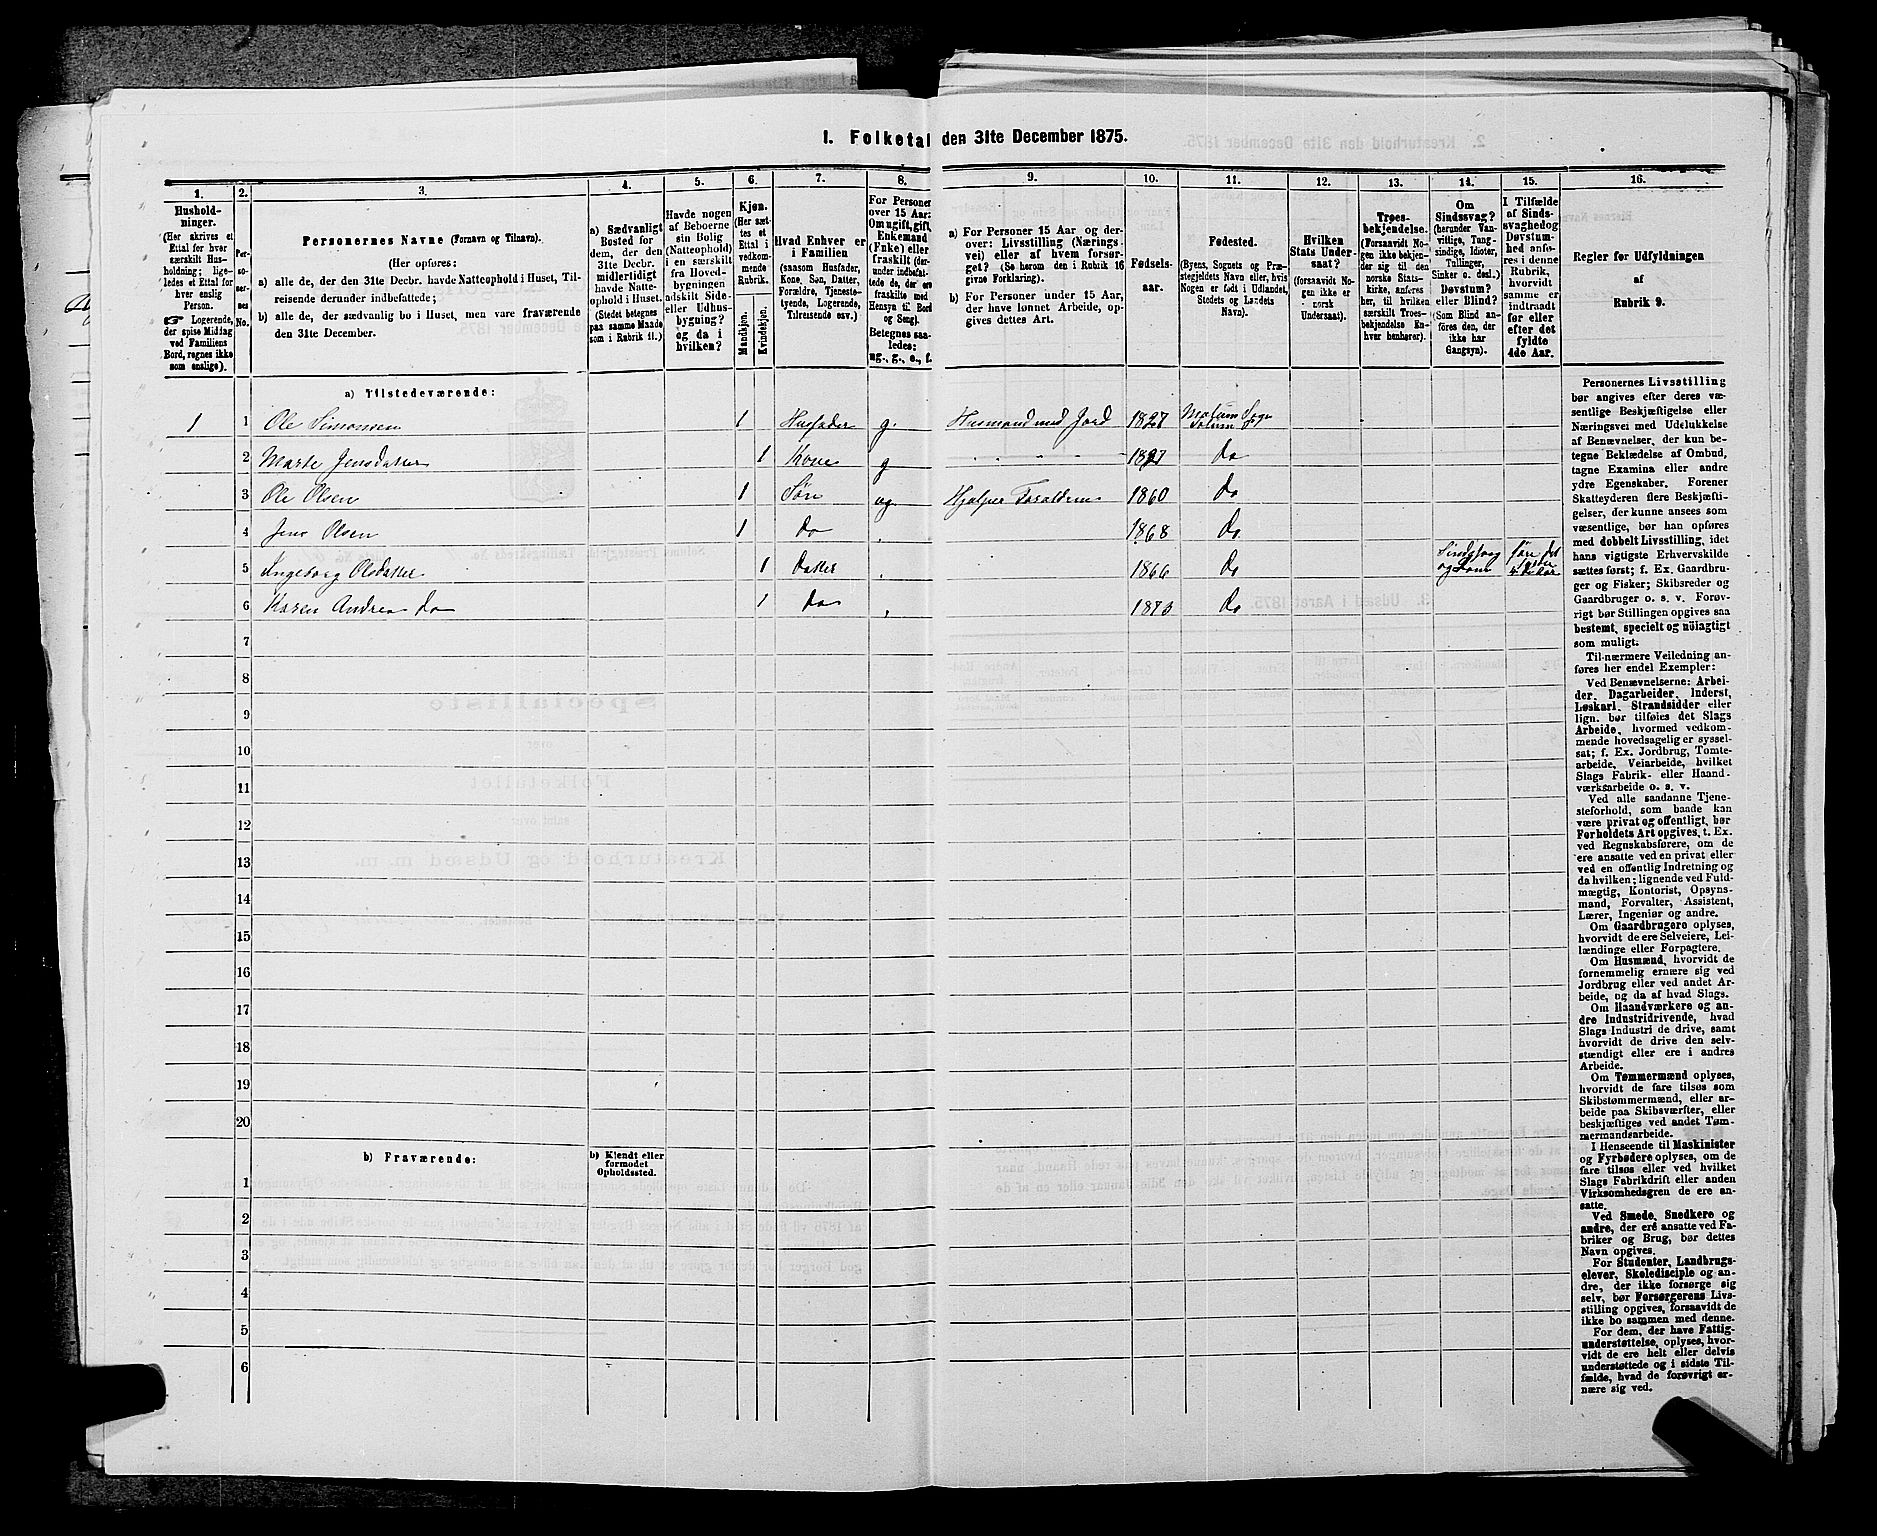 1. Folketal den 31te December 1875.
1. 2. 3. 4. 5. 6. 7. 8. 9. 10. 11. 12. 13. 14. 15. 16.
Hushold-
ninger.
(Her skrives et
Ettal for hver
særskilt Hus-
holdning; lige-
ledes et Ettal for
hver enslig
Person.
☞ Logerende,
der spise Middag
ved Familiens
Bord, regnes ikke
som enslige).
Per-
so-
ner-
nes
No.
Personernes Navne (Fornavn og Tilnavn).
(Her opføres:
a) alle de, der den 31te Decbr. havde Natteophold i Huset, Til-
reisende derunder indbefattede;
b) alle de, der sædvanlig bo i Huset, men vare fraværende
den 31te December.
a) Sædvanligt
Bosted for
dem, der den
31te Decbr.
midlertidigt
havde Natte-
ophold i Huset.
(Stedet betegnes
paa samme Maade
som i Rubrik 11.)
Havde nogen
af Beboerne
sin Bolig
(Natteophold)
i en særskilt
fra Hoved-
bygningen
adskilt Side-
eller Udhus-
bygning?
og da i
hvilken?
Kjøn.
(Her sæt-
tes et
Ettal i
vedkom-
mende
Rubrik.
Mandkjøn.
Kvindekjøn.
Hvad Enhver er
i Familien
(saasom Husfader,
Kone, Søn, Datter,
Forældre, Tjeneste-
tyende, Logerende,
Tilreisende osv.)
For Personer
over 15 Aar:
Om ugift, gift,
Enkemand
(Enke) eller
fraskilt (der-
under indbefat-
tede de, der ere
fraskilte med
Hensyn til Bord
og Seng).
Betegnes saa-
ledes:
ug., g., e., f.
a) For Personer 15 Aar og der-
over: Livsstilling (Nærings-
vei) eller af hvem forsør-
get? (Se herom den i Rubrik 16
givne Forklaring).
b) For Personer under 15 Aar,
der have lønnet Arbeide, op-
gives dettes Art.
Fødsels-
aar.
Fødested.
(Byens, Sognets og Præ-
stegjeldets Navn eller, hvis
Nogen er født i Udlandet,
Stedets og Landets
Navn).
Hvilken
Stats Under-
saat?
(forsaavidt No-
gen ikke er
norsk
Undersaat).
Troes-
bekjendelse.
(Forsaavidt No-
gen ikke bekjen-
der sig til den
norske Stats-
kirke, anføres
her, til hvilken
særskilt Troes-
bekjendelse En-
hver henhører).
Om
Sindssvag?
(herunder Van-
vittige, Tung-
sindige, Idioter,
Tullinger,
Sinker o. desl.)
Døvstum?
eller Blind?
(Som Blind an-
føres den, der
ikke har
Gangsyn).
I Tilfælde
af Sinds-
svaghed og
Døvstum-
hed anfø-
res i denne
Rubrik,
hvorvidt
samme er
indtraadt
før eller
efter det
fyldte
4de Aar.
Regler for Udfyldningen
af
Rubrik 9.
a) Tilstedeværende:
1 1 Ole Simonsen 1 Husfader g. Husmand med Jord 1827 Melum Sogn
Solum
2 Marte Jensdatter 1 Kone g " " " " 1827 Do
3 Ole Olsen 1 Søn ug. Hjælper Forældrene 1860 Do
4 Jens Olsen 1 do 1868 Do
5 Ingeborg Olsdatter 1 datter 1866 Do Sindssvag før det
og
6 Karen Andrea do 1 do 1873 Do
7
8
9
10
11
12
13
14
15
16
17
18
19
20
b) Fraværende:
b) Kjendt eller
formodet
Opholdssted.
1
2
3
4
5
6
Personernes Livsstilling
bør angives efter deres væ-
sentlige Beskjæftigelse eller
Næringsvei med Udelukkelse
af Benævnelser, der kun be-
tegne Beklædelse af Ombud,
tagne Examina eller andre
ydre Egenskaber. Forener
Skatteyderen flere Beskjæfti-
gelser, der kunne ansees som
væsentlige, bør han opføres
med dobbelt Livsstilling, idet
hans vigtigste Erhvervskilde
sættes først; f. Ex. Gaardbru-
ger og Fisker; Skibsreder og
Gaardbruger o. s. v. Forøv-
rigt bør Stillingen opgives saa
bestemt, specielt og nøiagtigt
som muligt.
Til nærmere Veiledning an-
føres her endel Exempler:
Ved Benævnelserne: Arbei-
der, Dagarbeider, Inderst,
Løskarl, Strandsidder eller
lign. bør tilføies det Slags
Arbeide, hvormed vedkom-
mende hovedsagelig er syssel-
sat; f. Ex. Jordbrug, Tomte-
arbeide, Veiarbeide, hvilket
Slags Fabrik- eller Haand-
værksarbeide o. s. v.
Ved alle saadanne Tjene-
steforhold, som baade kan
være privat og offentligt, bør
Forholdets Art opgives, t. Ex.
ved Regnskabsførere, om de
ere ansatte ved en privat eller
ved en offentlig Indretning og
da hvilken; lignende ved Fuld-
mægtig, Kontorist, Opsyns-
mand, Forvalter, Assistent,
Lærer, Ingeniør og andre.
Om Gaardbrugere oplyses,
hvorvidt de ere Selveiere, Lei-
lændinge eller Forpagtere.
Om Husmænd, hvorvidt de
fornemmelig ernære sig ved
Jordbrug eller ved andet Ar-
beide, og da af hvad Slags.
Om Haandværkere og an-
dre Industridrivende, hvad
Slags Industri de drive, samt
hvorvidt de drive den selv-
stændigt eller ere i andres
Arbeide.
Om Tømmermænd oplyses,
hvorvidt de fare tilsøs som
Skibstømmermænd, eller ar-
beide paa Skibsværfter, eller
beskjæftiges ved andet Tøm-
mermandsarbeide.
I Henseende til Maskinister
og Fyrbødere oplyses, om de
fare tilsøs eller ved hvilket
Slags Fabrikdrift eller anden
Virksomhedsgren de ere an-
satte.
Ved Smede, Snedkere og
andre, der ere ansatte ved Fa-
briker og Brug, bør dettes
Navn opgives.
For Studenter, Landbrugs-
elever, Skoledisciple og an-
dre, der ikke forsørge sig
selv, bør Forsørgerens Livs-
stilling opgives, forsaavidt de
ikke bo sammen med denne.
For dem, der have Fattig-
understøttelse, oplyses, hvor-
vidt de ere helt eller delvis
understøttede og i sidste Til-
fælde, hvad de forøvrigt er-
nære sig ved.